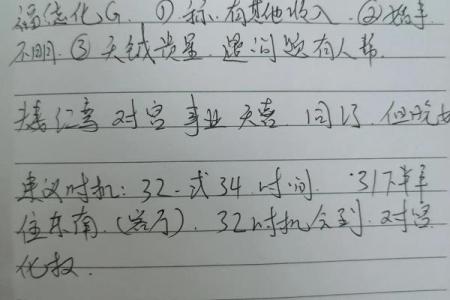 福德化G. ① 称..有其他收入. ② 始乱
不明. ③ 天钺贵星. 遇问题有人帮.
红鸾 对宫 事业 天喜. 同 但晚
建议时机: 32. 或 34 时间. 31下半年
住东南. (客厅). 32时机会到. 对宫
化权.